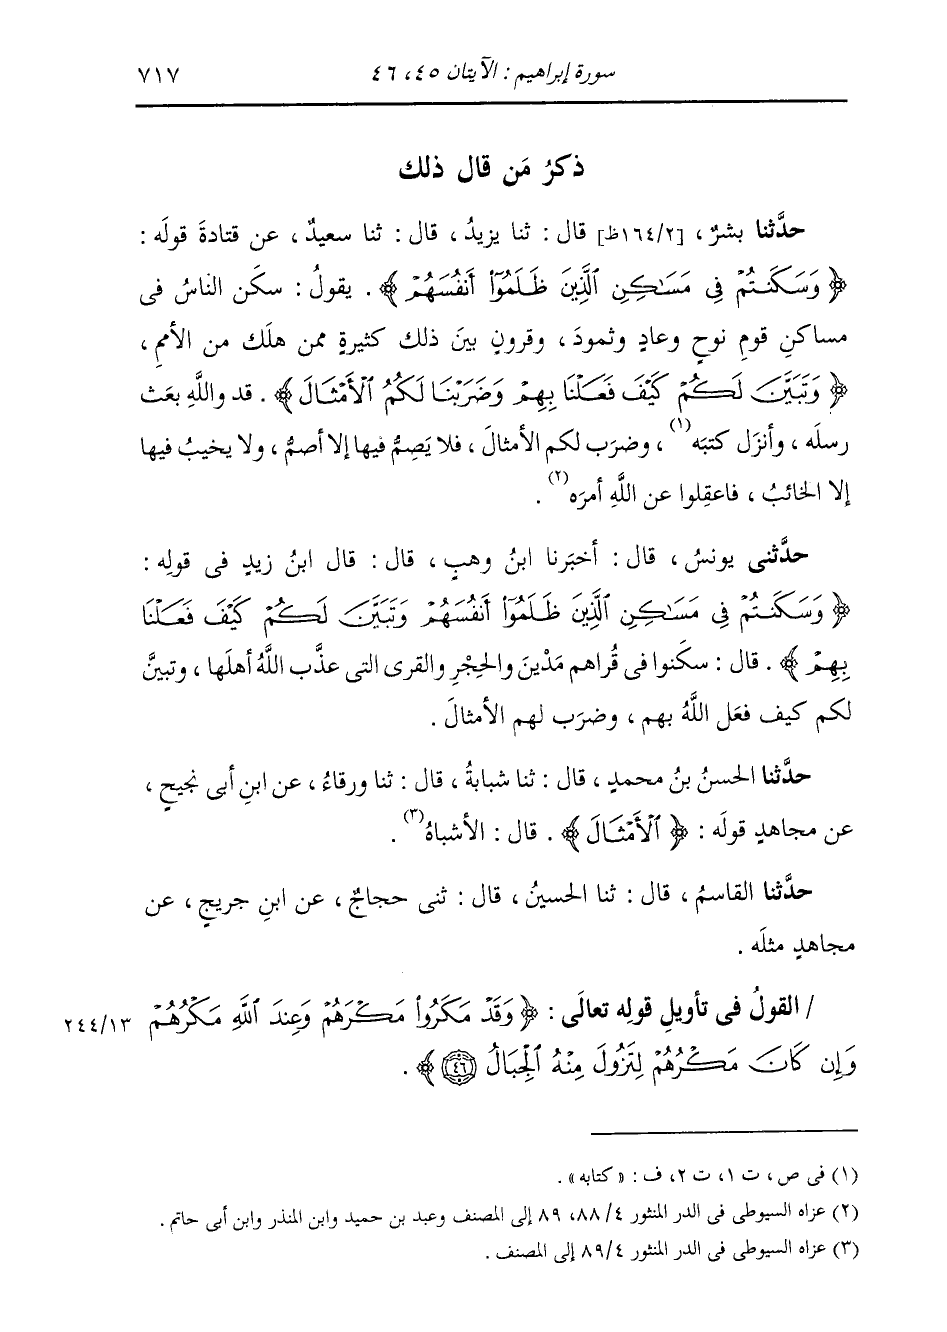 سورة إبراهيم : الآيتان ٤٥، ٤٦ ٧١٧
ذكرُ مَن قال ذلك
حدَّثنا بشرٌ ، [١٦٤/٢ظ] قال : ثنا يزيدُ ، قال : ثنا سعيدٌ ، عن قتادةَ قولَه :
﴿ وَسَكَنتُمْ فِي مَسَٰكِنِ ٱلَّذِينَ ظَلَمُوٓا۟ أَنفُسَهُمْ ﴾ . يقولُ : سكَن الناسُ فى
مساكنِ قومِ نوحٍ وعادٍ وثمودَ ، وقرونٍ بينَ ذلك كثيرةٍ ممن هلَك من الأممِ ،
﴿ وَتَبَيَّنَ لَكُمْ كَيْفَ فَعَلْنَا بِهِمْ وَضَرَبْنَا لَكُمُ ٱلْأَمْثَالَ ﴾ . قد واللَّهِ بعَث
رسلَه ، وأنزَل كتبَه(١) ، وضرَب لكم الأمثالَ ، فلا يَصِمُّ فيها إلا أصمُّ ، ولا يخيبُ فيها
إلا الخائبُ ، فاعقِلوا عن اللَّهِ أمرَه(٢) .
حدَّثنى يونسُ ، قال : أخبَرنا ابنُ وهبٍ ، قال : قال ابنُ زيدٍ فى قولِه :
﴿ وَسَكَنتُمْ فِي مَسَٰكِنِ ٱلَّذِينَ ظَلَمُوٓا۟ أَنفُسَهُمْ وَتَبَيَّنَ لَكُمْ كَيْفَ فَعَلْنَا
بِهِمْ ﴾ . قال : سكَنوا فى قُراهم مَدْينَ والحِجْرِ والقرى التى عذَّب اللَّهُ أهلَها ، وتبينَّ
لكم كيف فعَل اللَّهُ بهم ، وضرَب لهم الأمثالَ .
حدَّثنا الحسنُ بنُ محمدٍ ، قال : ثنا شبابةُ ، قال : ثنا ورقاءُ ، عن ابنِ أبى نجيحٍ ،
عن مجاهدٍ قولَه : ﴿ ٱلْأَمْثَالَ ﴾ . قال : الأشباهُ(٣) .
حدَّثنا القاسمُ ، قال : ثنا الحسينُ ، قال : ثنى حجاجٌ ، عن ابنِ جريجٍ ، عن
مجاهدٍ مثلَه .
/ القولُ فى تأويلِ قولِه تعالَى : ﴿ وَقَدْ مَكَرُوا۟ مَكْرَهُمْ وَعِندَ ٱللَّهِ مَكْرُهُمْ ٢٤٤/١٣
وَإِن كَانَ مَكْرُهُمْ لِتَزُولَ مِنْهُ ٱلْجِبَالُ ۝٤٦ ﴾ .
(١) فى ص ، ت ١، ت ٢، ف : « كتابه » .
(٢) عزاه السيوطى فى الدر المنثور ٨٨/٤، ٨٩ إلى المصنف وعبد بن حميد وابن المنذر وابن أبى حاتم .
(٣) عزاه السيوطى فى الدر المنثور ٨٩/٤ إلى المصنف .